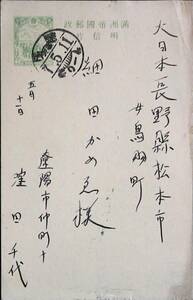 満洲帝國郵政
明信片
大日本長野縣松本市
女鳥羽町
細田かめゑ様
五月
十一日
遼陽市仲町十
窪田千代